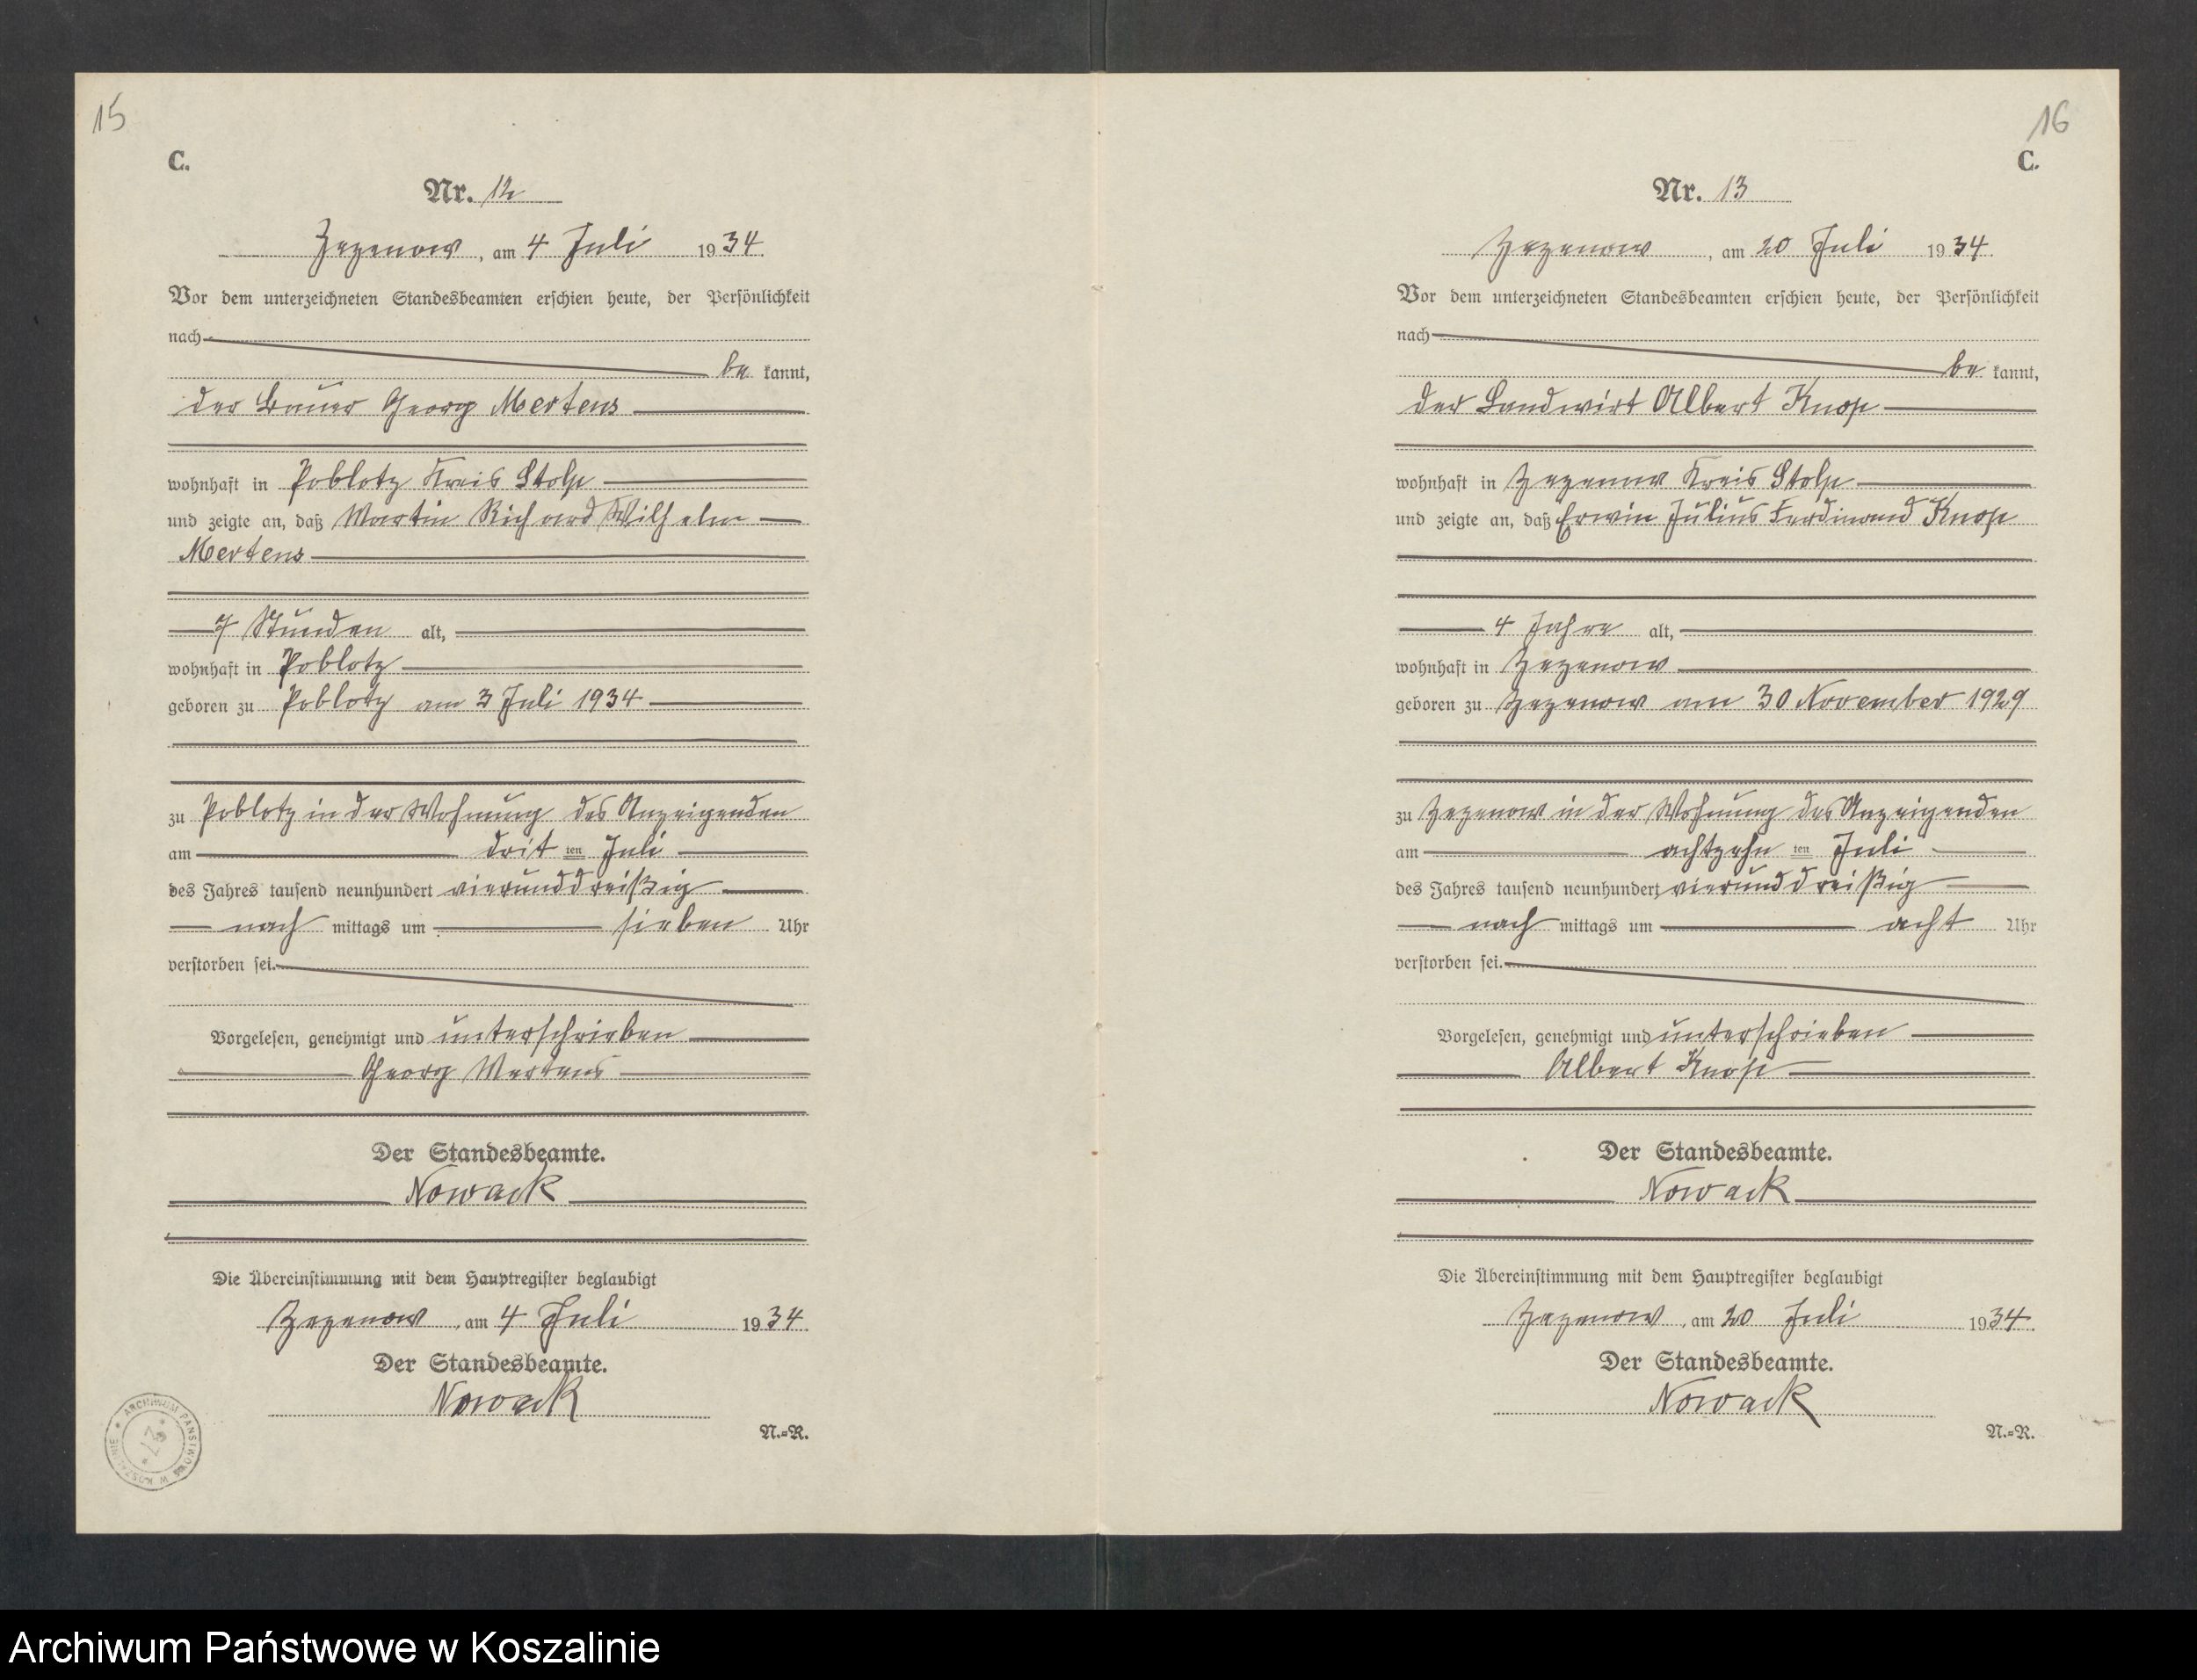 15
C.
Nr. 12
Zezenow, am 4 Juli 1934.
Vor dem unterzeichneten Standesbeamten erschien heute, der Persönlichkeit
nach
be kannt,
der Bauer Georg Mertens
wohnhaft in Poblotz Kreis Stolp
und zeigte an, daß Martin Richard Wilhelm
Mertens
7 Stunden alt,
wohnhaft in Poblotz
geboren zu Poblotz am 3 Juli 1934
zu Poblotz in der Wohnung des Anzeigenden
am drit ten Juli
des Jahres tausend neunhundert vierunddreißig
nach mittags um sieben Uhr
verstorben sei.
Vorgelesen, genehmigt und unterschrieben
Georg Mertens
Der Standesbeamte.
Nowack
Die Übereinstimmung mit dem Hauptregister beglaubigt
Zezenow, am 4 Juli 1934.
Der Standesbeamte.
Nowack
N.=R.
ARCHIWUM PAŃSTWOWE W KOSZALINIE
16
C.
Nr. 13
Zezenow, am 20 Juli 1934.
Vor dem unterzeichneten Standesbeamten erschien heute, der Persönlichkeit
nach
be kannt,
der Landwirt Albert Knop
wohnhaft in Zezenow Kreis Stolp
und zeigte an, daß Erwin Julius Ferdinand Knop
4 Jahre alt,
wohnhaft in Zezenow
geboren zu Zezenow am 30 November 1929
zu Zezenow in der Wohnung des Anzeigenden
am achtzehn ten Juli
des Jahres tausend neunhundert vierunddreißig
nach mittags um acht Uhr
verstorben sei.
Vorgelesen, genehmigt und unterschrieben
Albert Knop
Der Standesbeamte.
Nowack
Die Übereinstimmung mit dem Hauptregister beglaubigt
Zezenow, am 20 Juli 1934.
Der Standesbeamte.
Nowack
N.=R.
Archiwum Państwowe w Koszalinie